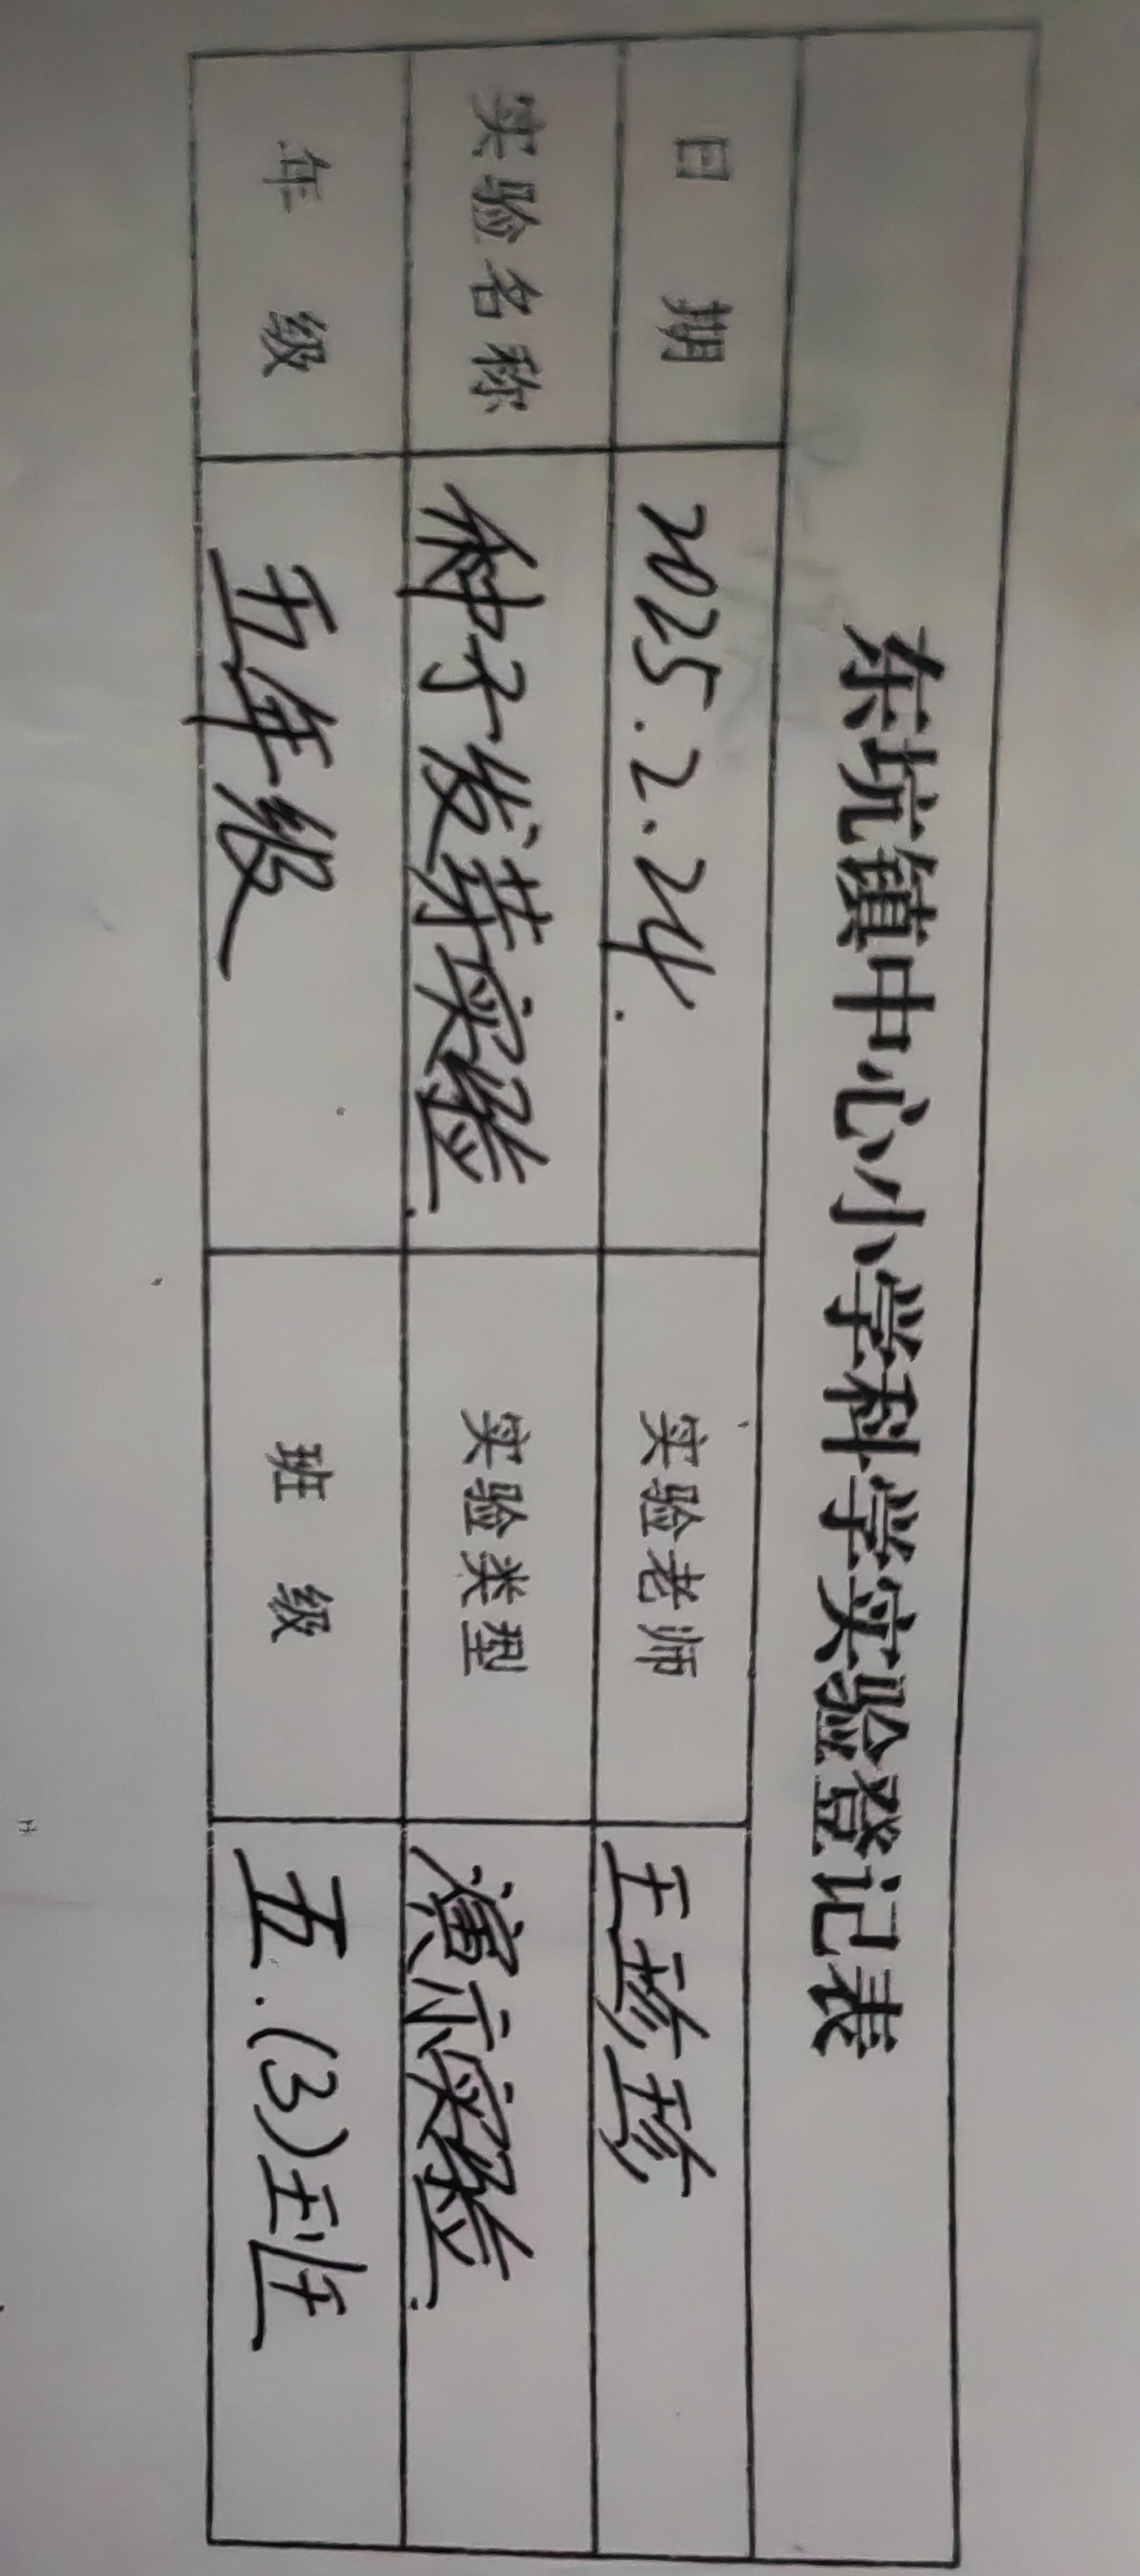 东坑镇中心小学科学实验登记表
日 期 2025.2.24. 实验老师 王珍珍
实验名称 种子发芽实验. 实验类型 演示实验.
年 级 五年级 班 级 五.(3)班